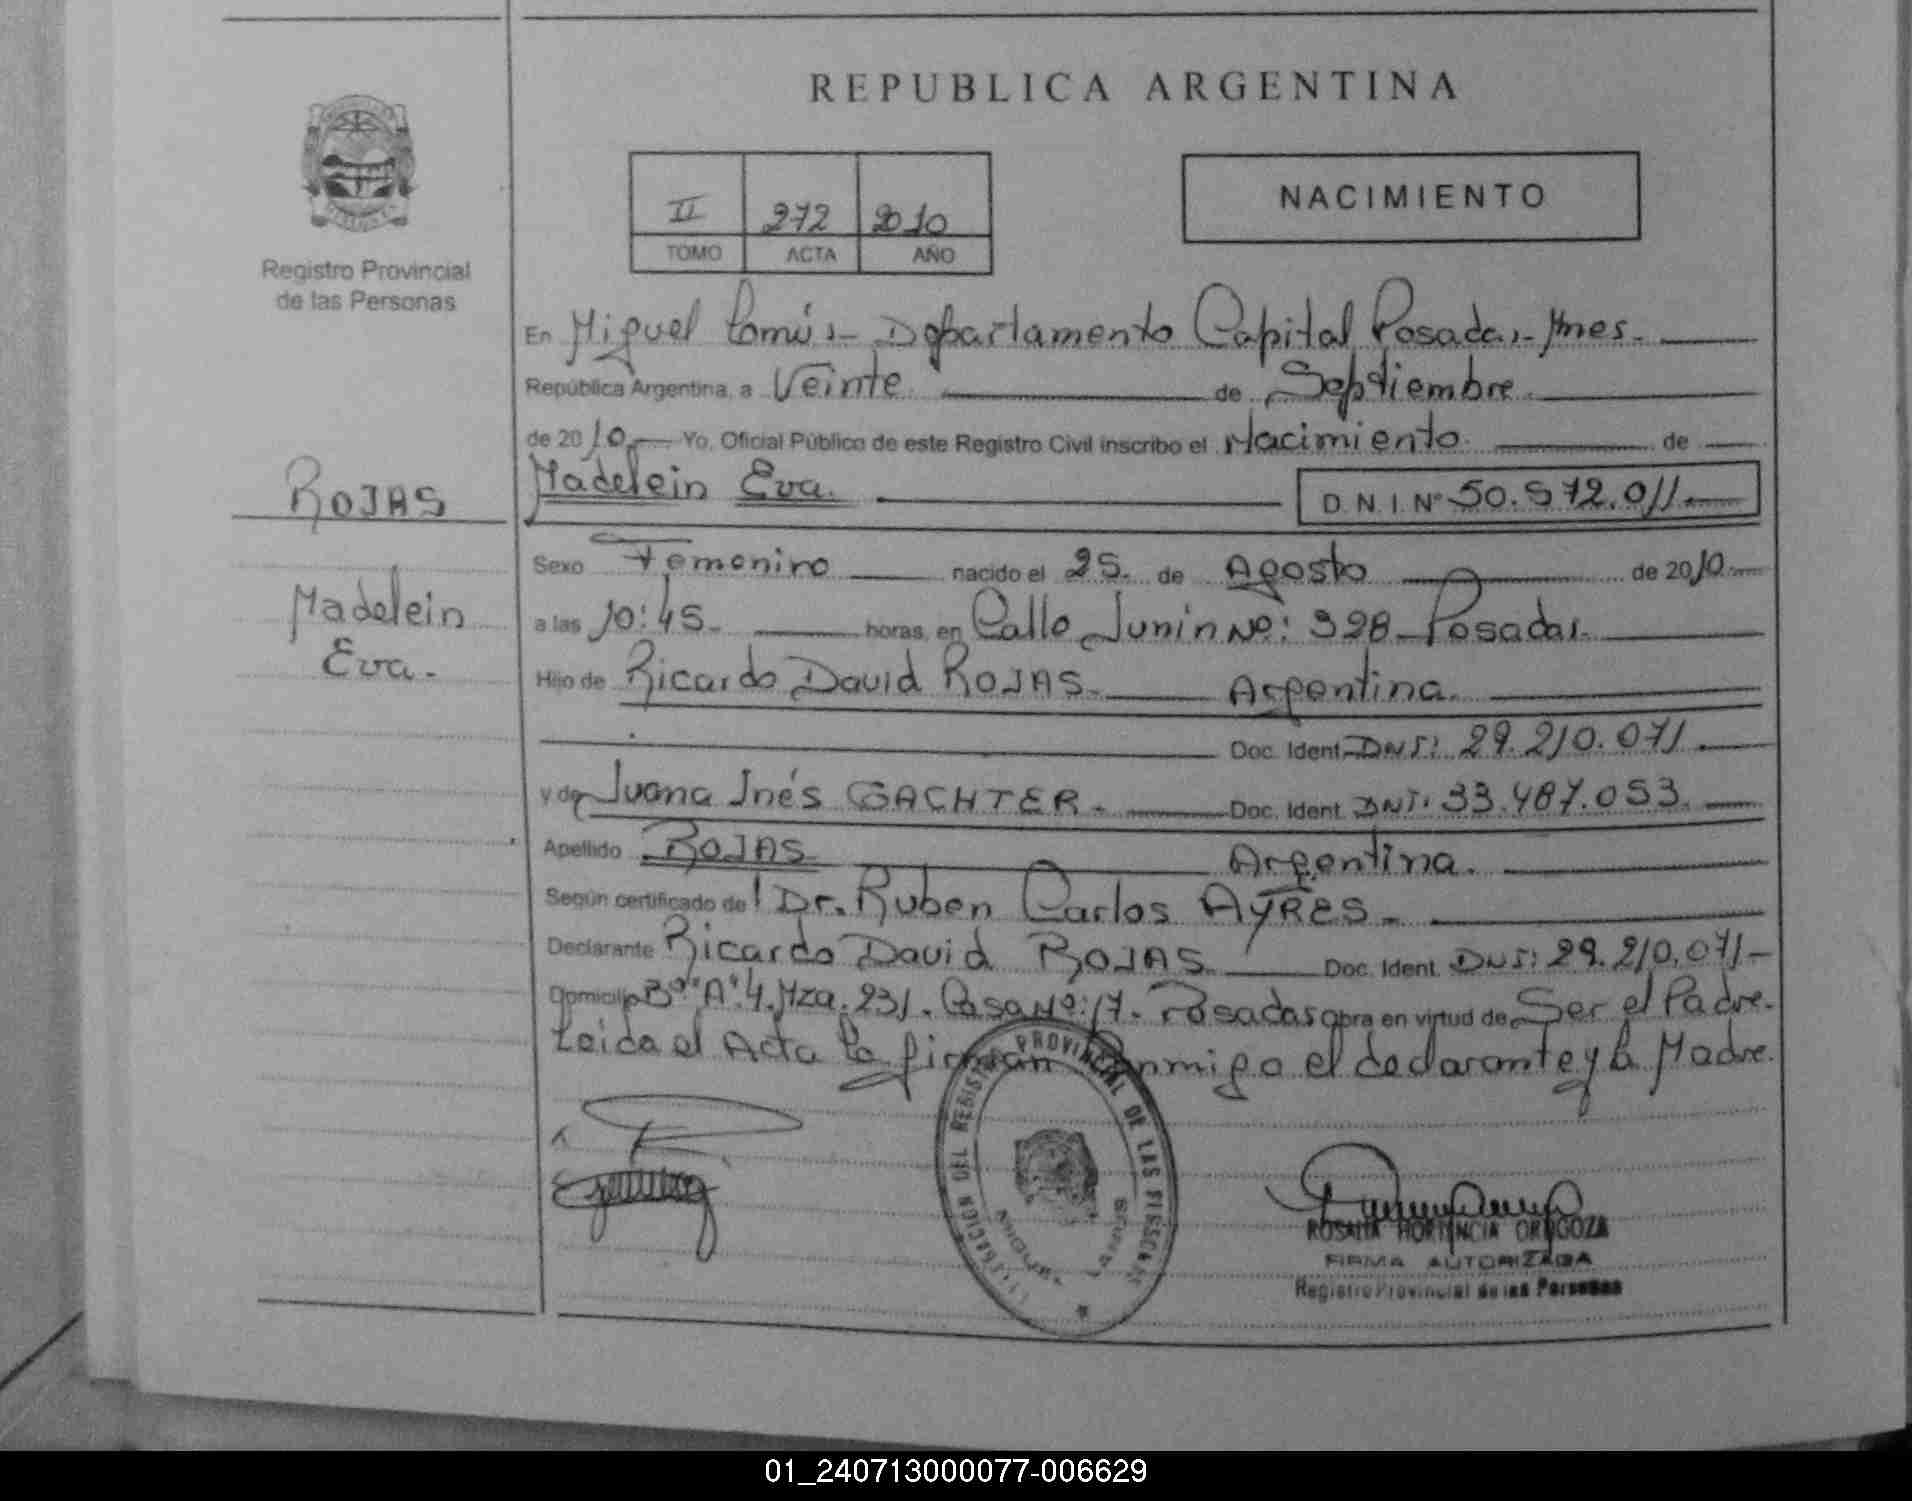 REPUBLICA ARGENTINA
Registro Provincial
de las Personas
II 272 2010
TOMO ACTA AÑO
NACIMIENTO
En Miguel Lanús - Departamento Capital Posadas - Mnes.
República Argentina, a Veinte de Septiembre
de 2010 Yo, Oficial Público de este Registro Civil inscribo el Nacimiento de
ROJAS
Madelein Eva.
Madelein Eva. D.N.I. Nº 50.572.011
Sexo Femenino nacido el 25 de Agosto de 2010
a las 10:45 horas, en Calle Junin Nº: 398 Posadas.
Hijo de Ricardo David ROJAS Argentina.
Doc. Ident. DNI: 29.210.071
y de Juana Inés GACHTER. Doc. Ident. DNI: 33.487.053
Apellido ROJAS Argentina.
Según certificado del Dr. Ruben Carlos AYRES
Declarante Ricardo David ROJAS Doc. Ident. DNI: 29.210.071
Domicilio Bº "A" 4. Mza. 231. Casa Nº: 17. Posadas obra en virtud de Ser el Padre.
Leida el Acta la firman Conmigo el declarante y la Madre.
PROVINCIAL DE LAS
DEL REGISTRO
ROSALIA HORTENCIA
FIRMA AUTORIZADA
Registro Provincial de las Personas
01_240713000077-006629